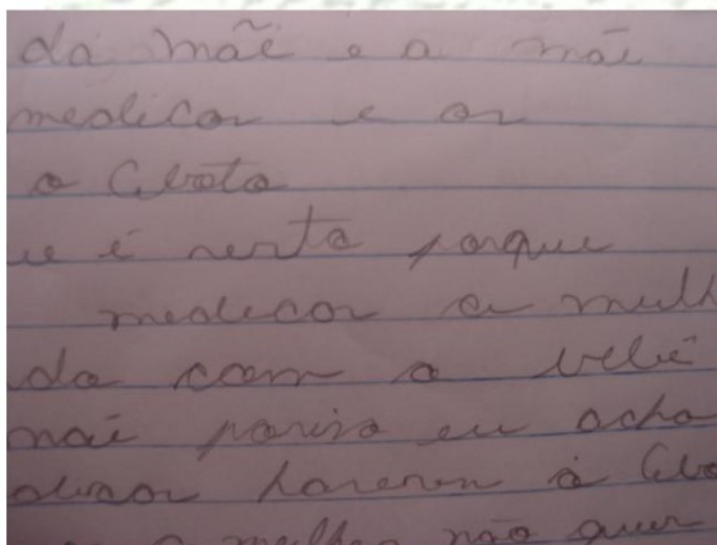 da mãe e a mãe
medicar e or
o Aborto
ue é certo porque
medicar a mulh
do com o bebê
mãe poriso eu acho
deixar fazerem o Abo
a mulher não quer